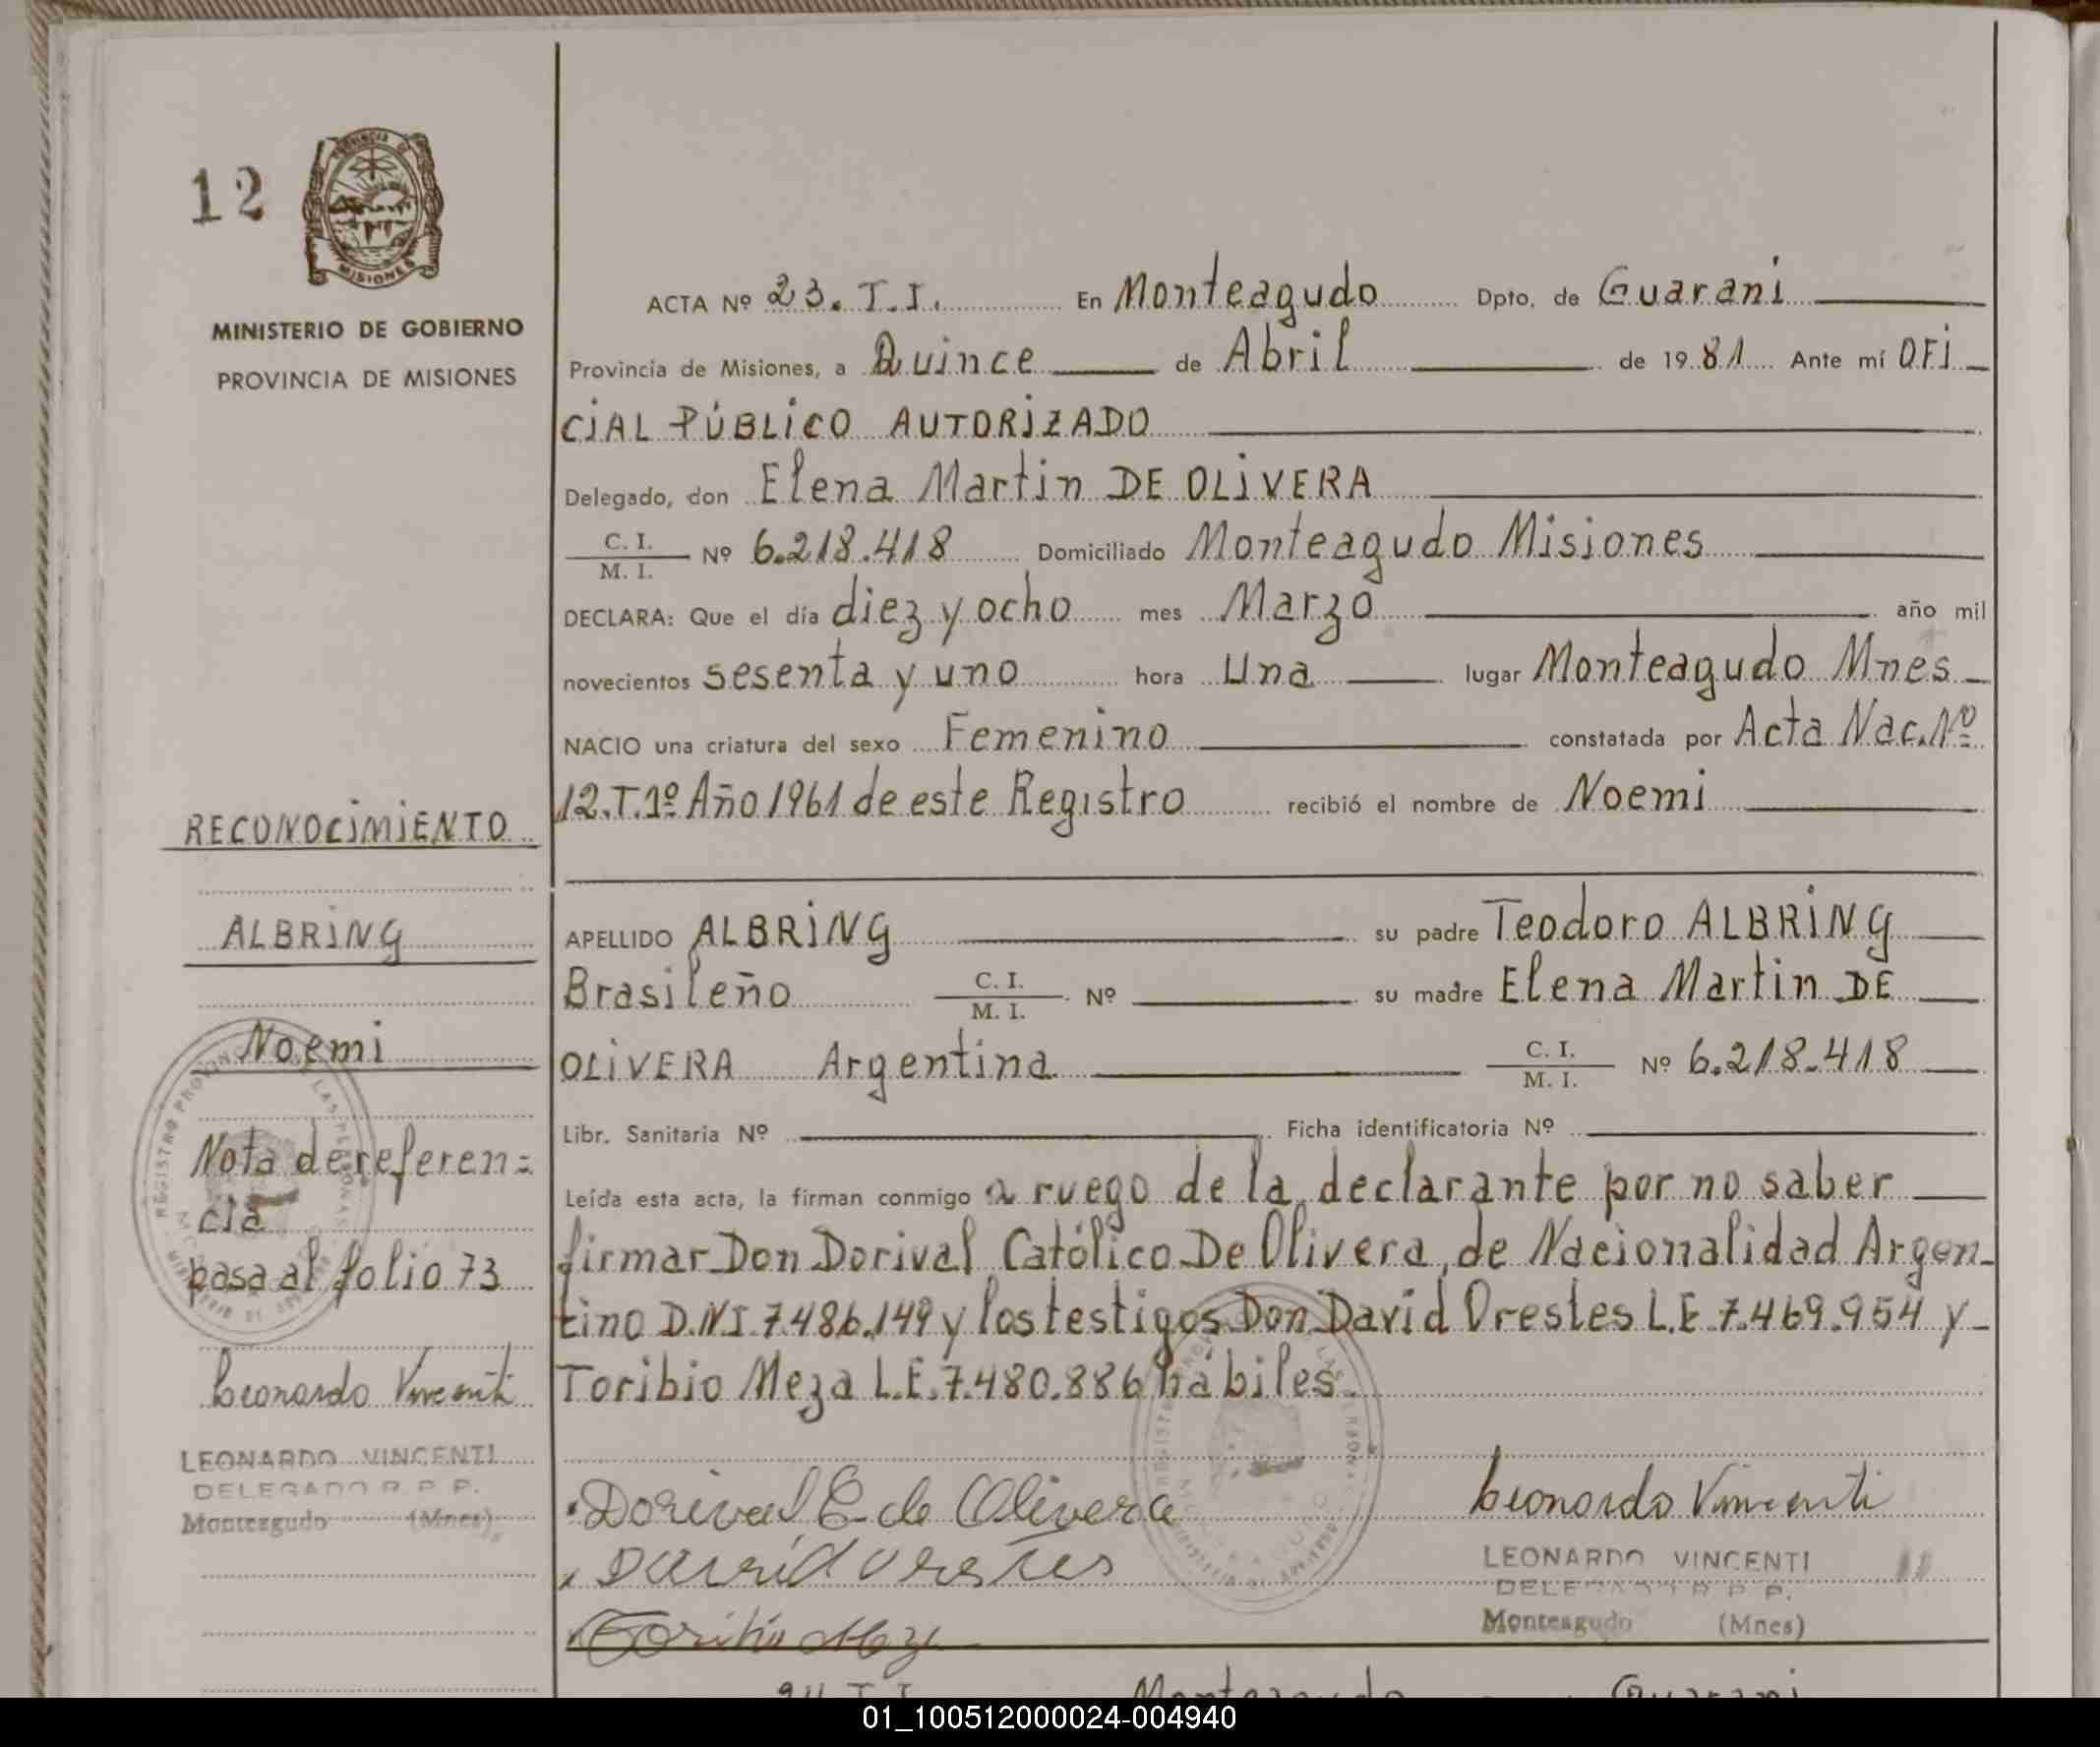 12
PROVINCIA DE
MISIONES
MINISTERIO DE GOBIERNO
PROVINCIA DE MISIONES
ACTA Nº 23. T.I. En Monteagudo Dpto. de Guarani
Provincia de Misiones, a Quince de Abril de 1981 Ante mí OFI
CIAL PÚBLICO AUTORIZADO
Delegado, don Elena Martin DE OLIVERA
C. I.
M. I. Nº 6.218.418 Domiciliado Monteagudo Misiones
DECLARA: Que el día diez y ocho mes Marzo año mil
novecientos sesenta y uno hora Una lugar Monteagudo Mnes
NACIO una criatura del sexo Femenino constatada por Acta Nac. Nº
12.T.1º Año 1961 de este Registro recibió el nombre de Noemi
RECONOCIMIENTO
ALBRING
Noemi
Nota de referen=
cia
pasa al folio 73
Leonardo Vincenti
LEONARDO VINCENTI
DELEGADO R. P. P.
Monteagudo (Mnes).
APELLIDO ALBRING su padre Teodoro ALBRING
Brasileño C. I. M. I. Nº su madre Elena Martin DE
OLIVERA Argentina C. I. M. I. Nº 6.218.418
Libr. Sanitaria Nº Ficha identificatoria Nº
Leída esta acta, la firman conmigo a ruego de la declarante por no saber
firmar Don Dorival Católico De Olivera, de Nacionalidad Argen-
tino D.N.I. 7.486.149 y los testigos Don David Orestes L.E. 7.469.954 y
Toribio Meza L.E. 7.480.886 hábiles.
Dorival C. de Olivera
David Orestes
Toribio Meza
Leonardo Vincenti
LEONARDO VINCENTI
DELEGADO R. P. P.
Monteagudo (Mnes)
01_100512000024-004940